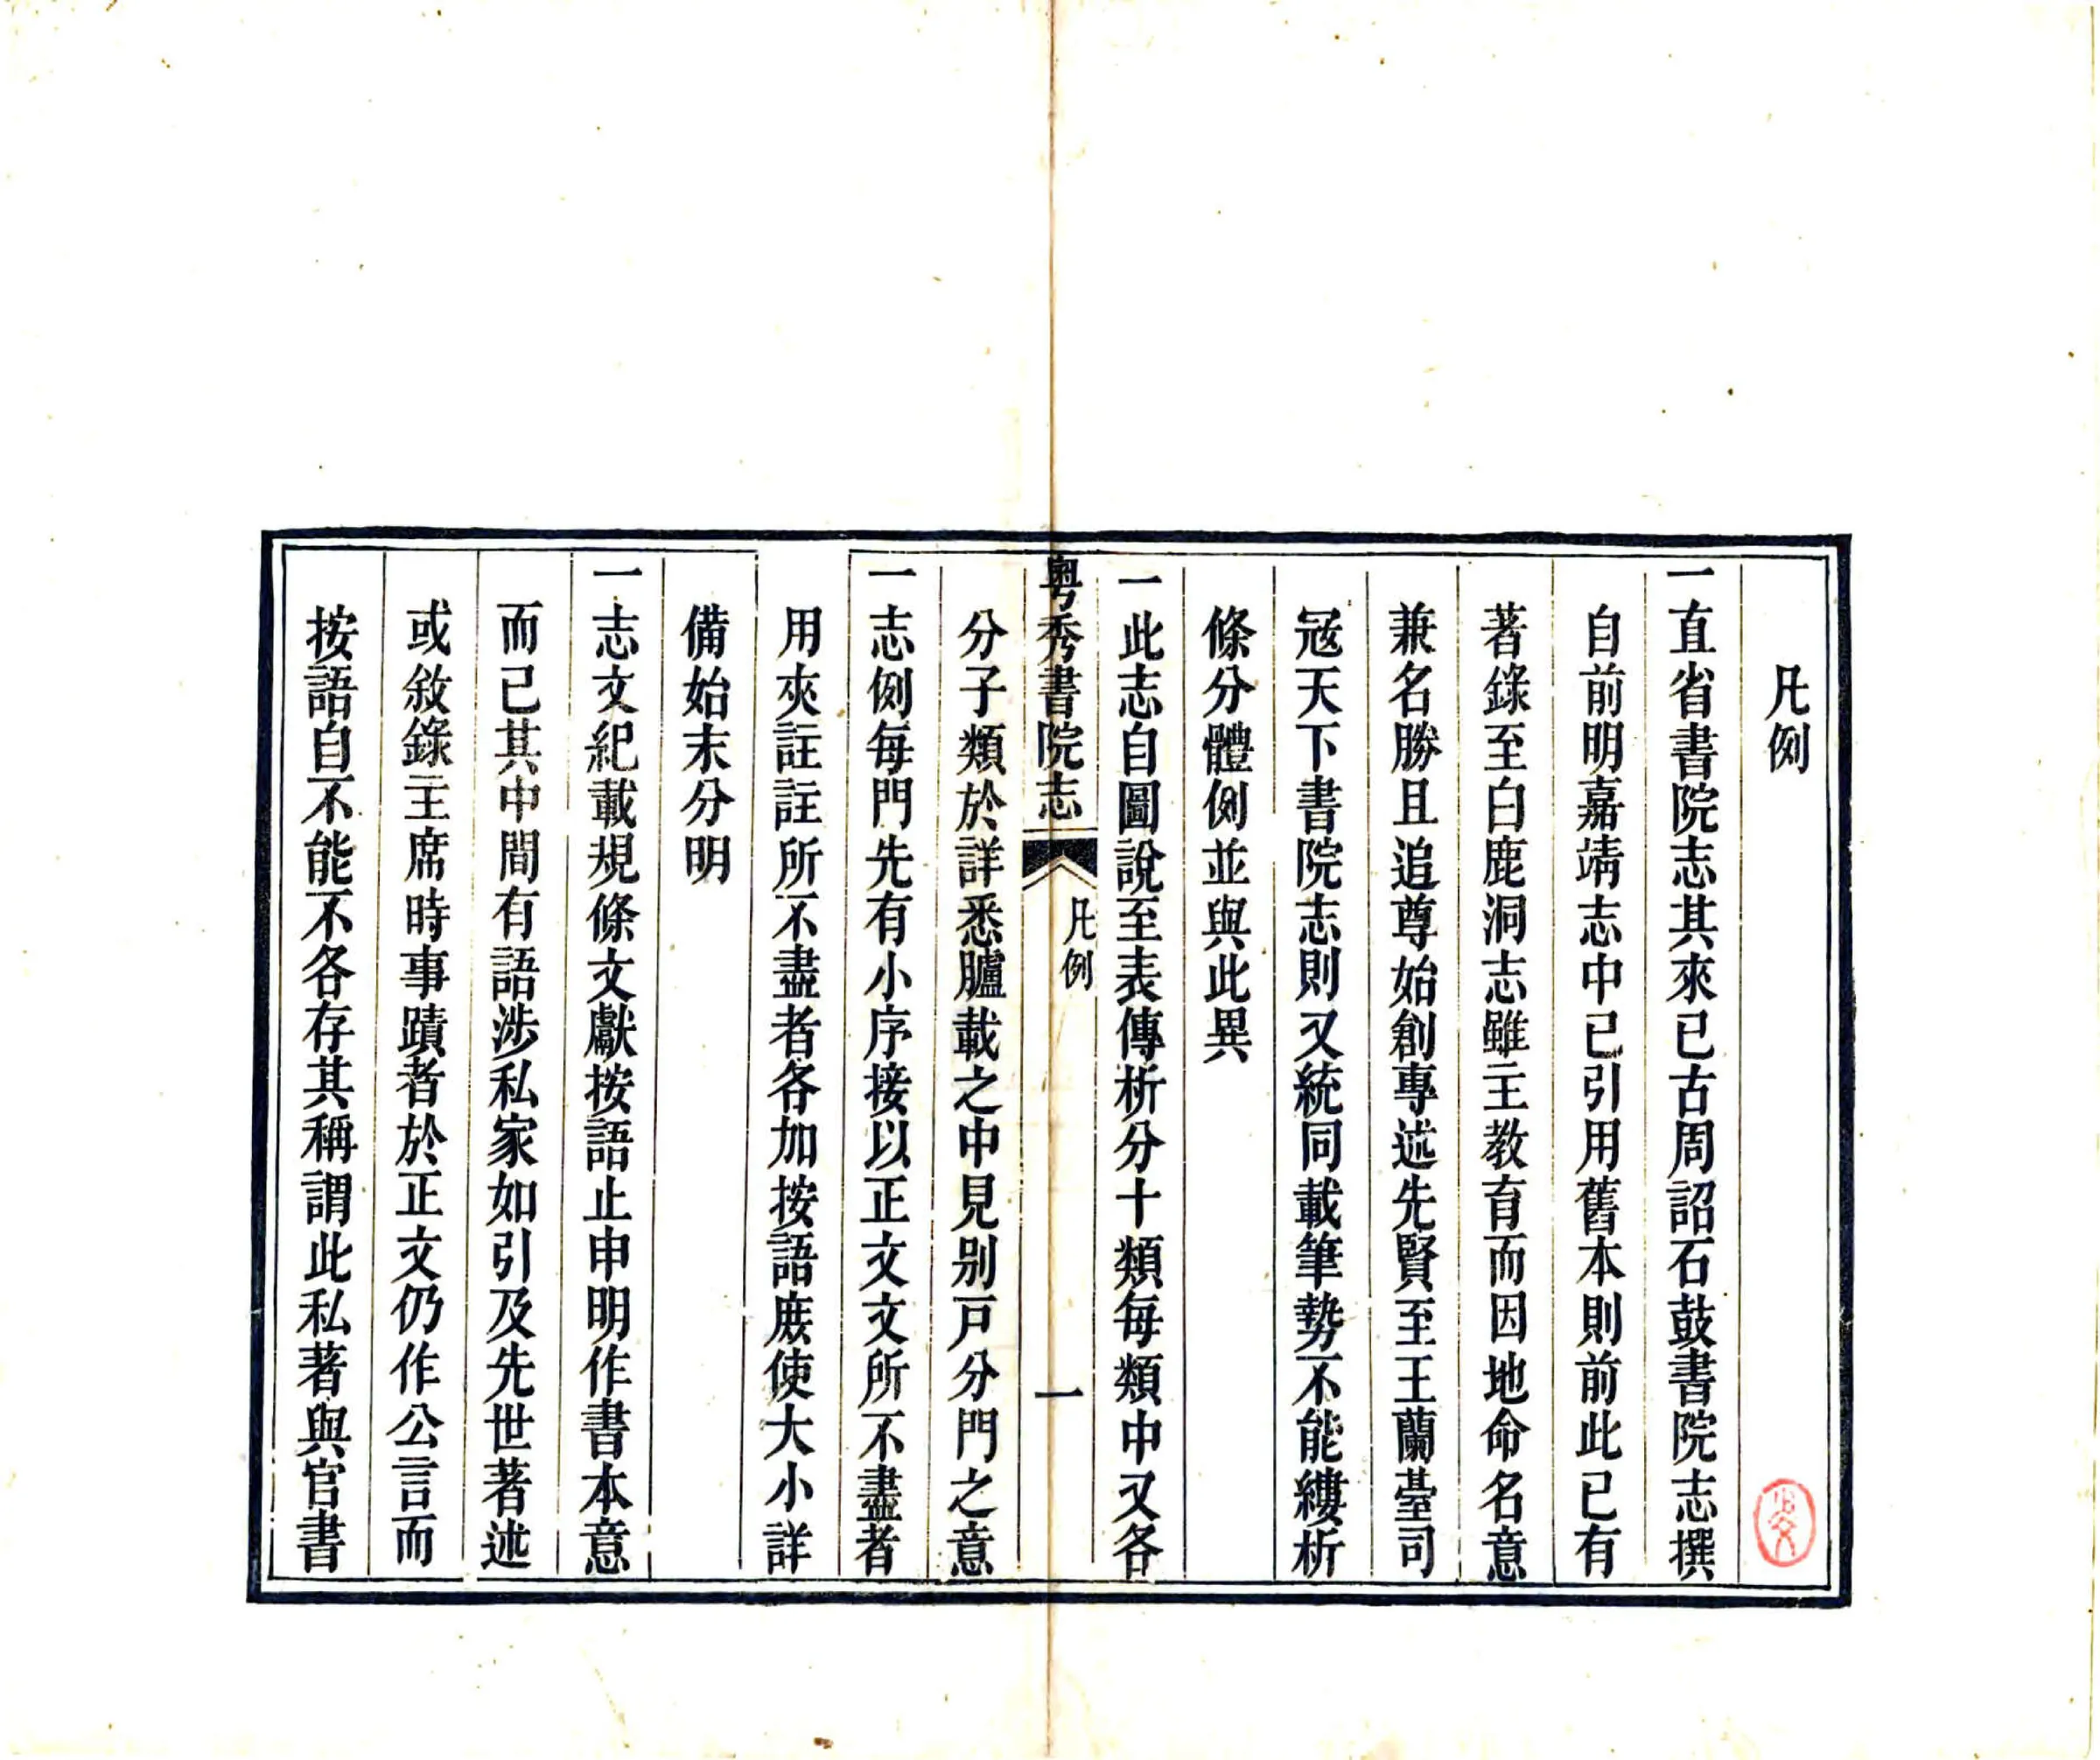 凡例
一直省書院志其來已古周詔石鼓書院志撰
自前明嘉靖志中已引用舊本則前此已有
著錄至白鹿洞志雖主教育而因地命名意
兼名勝且追尊始創專述先賢至王蘭臺司
冦天下書院志則又統同載筆勢不能縷析
條分體例並與此異
一此志自圖說至表傳析分十類每類中又各
粤秀書院志
凡例
一
分子類於詳悉臚載之中見别戸分門之意
一志例每門先有小序接以正文文所不盡者
用夾註註所不盡者各加按語庻使大小詳
備始末分明
一志文紀載規條文獻按語止申明作書本意
而已其中間有語涉私家如引及先世著述
或敘錄主席時事蹟者於正文仍作公言而
按語自不能不各存其稱謂此私著與官書